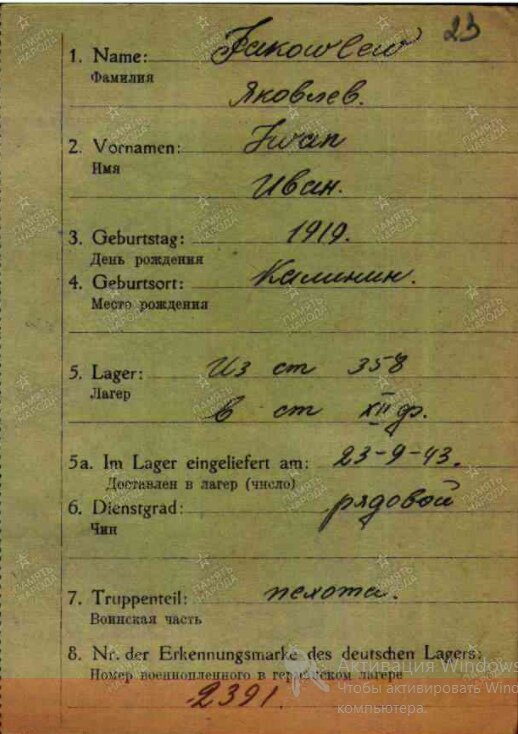 23
1. Name: Jakowlew
Фамилия
Яковлев.
2. Vornamen: Iwan
Имя
Иван.
3. Geburtstag: 1919.
День рождения
4. Geburtsort: Калинин.
Место рождения
5. Lager: Из ст 358
Лагер
в ст XII ф.
5a. Im Lager eingeliefert am: 23-9-43.
Доставлен в лагер (число)
6. Dienstgrad: рядовой
Чин
7. Truppenteil: пехота.
Воинская часть
8. Nr. der Erkennungsmarke des deutschen Lagers:
Номер военнопленного в германском лагере
2391.
Активация Windows
Чтобы активировать Wind
компьютера.
ПАМЯТЬ НАРОДА